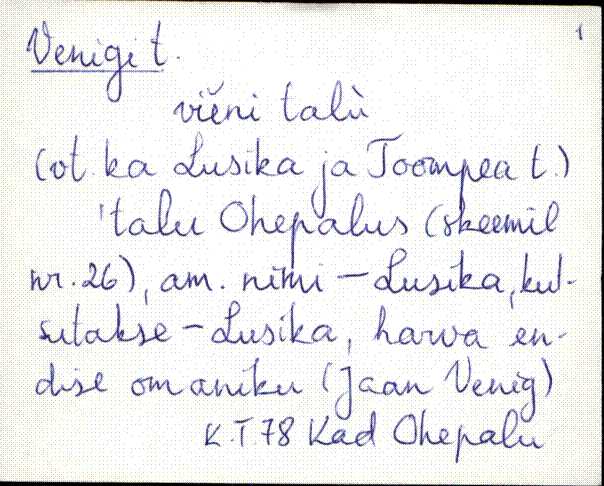 1
Venigi t.
vièni talù
(vt. ka Lusika ja Toompea t.)
'talu Ohepalus (skeemil
nr. 26), am. nimi – Lusika, kut-
sutakse – Lusika, harva en-
dise omaniku (Jaan Venig)
K.T 78 Kad Ohepalu